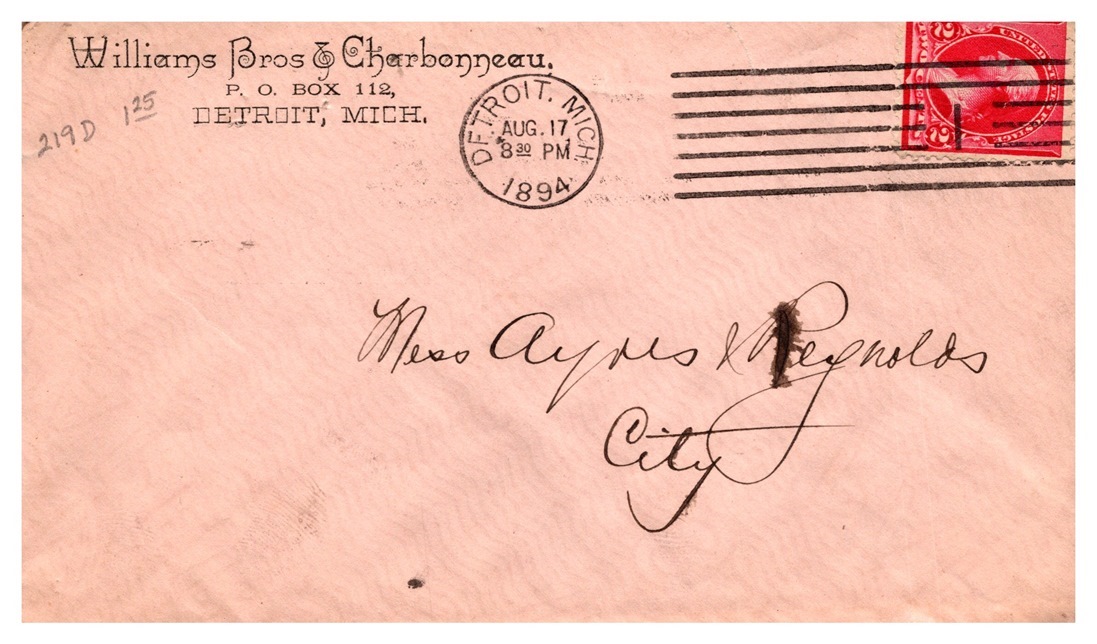 Williams Bros & Charbonneau.
P. O. BOX 112,
DETROIT, MICH.
219D 1 25
DETROIT, MICH.
AUG. 17
8 30 PM
1894
1
2 2
UNITED
POSTAGE
Mess Ayres & Reynolds
City